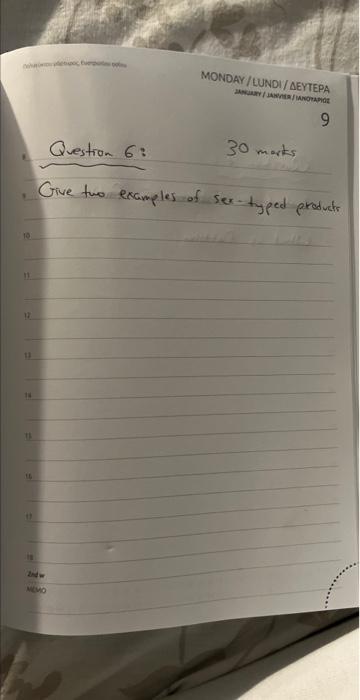 MONDAY / LUNDI / ΔΕΥΤΕΡΑ
JANUARY / JANVIER / ΙΑΝΟΥΑΡΙΟΣ
9
Question 6: 30 marks
9 Give two examples of sex-typed products
10
11
12
13
14
15
16
17
18
2nd w
MEMO